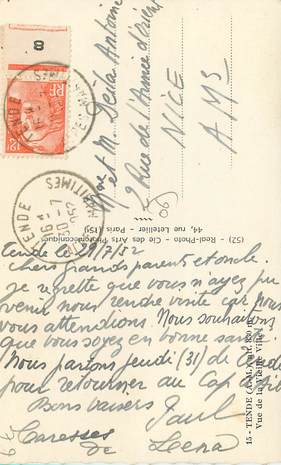 Tende le 29/7/52
chers grands parents et oncle.
Je regrette que vous n'ayez pu
venir nous rendre visite car nous
vous attendions. Nous souhaitons
que vous soyez en bonne santé.
Nous partons jeudi (31) de
pour retourner au Cap
Bons baisers Paul
Caresses
de Lena
Mme et M. Antoine
Rue de l'Armée d'Orient
NICE
A MS
06
8
RF
TENDE
ALPES MARITIMES
TENDE
16 H
30-7
1952
MARITIMES
(52) - Real-Photo - Cie des Arts Photomécaniques
44, rue Letellier - Paris (15e)
15 - TENDE (A.-M.)
Vue de la Vieille Ville